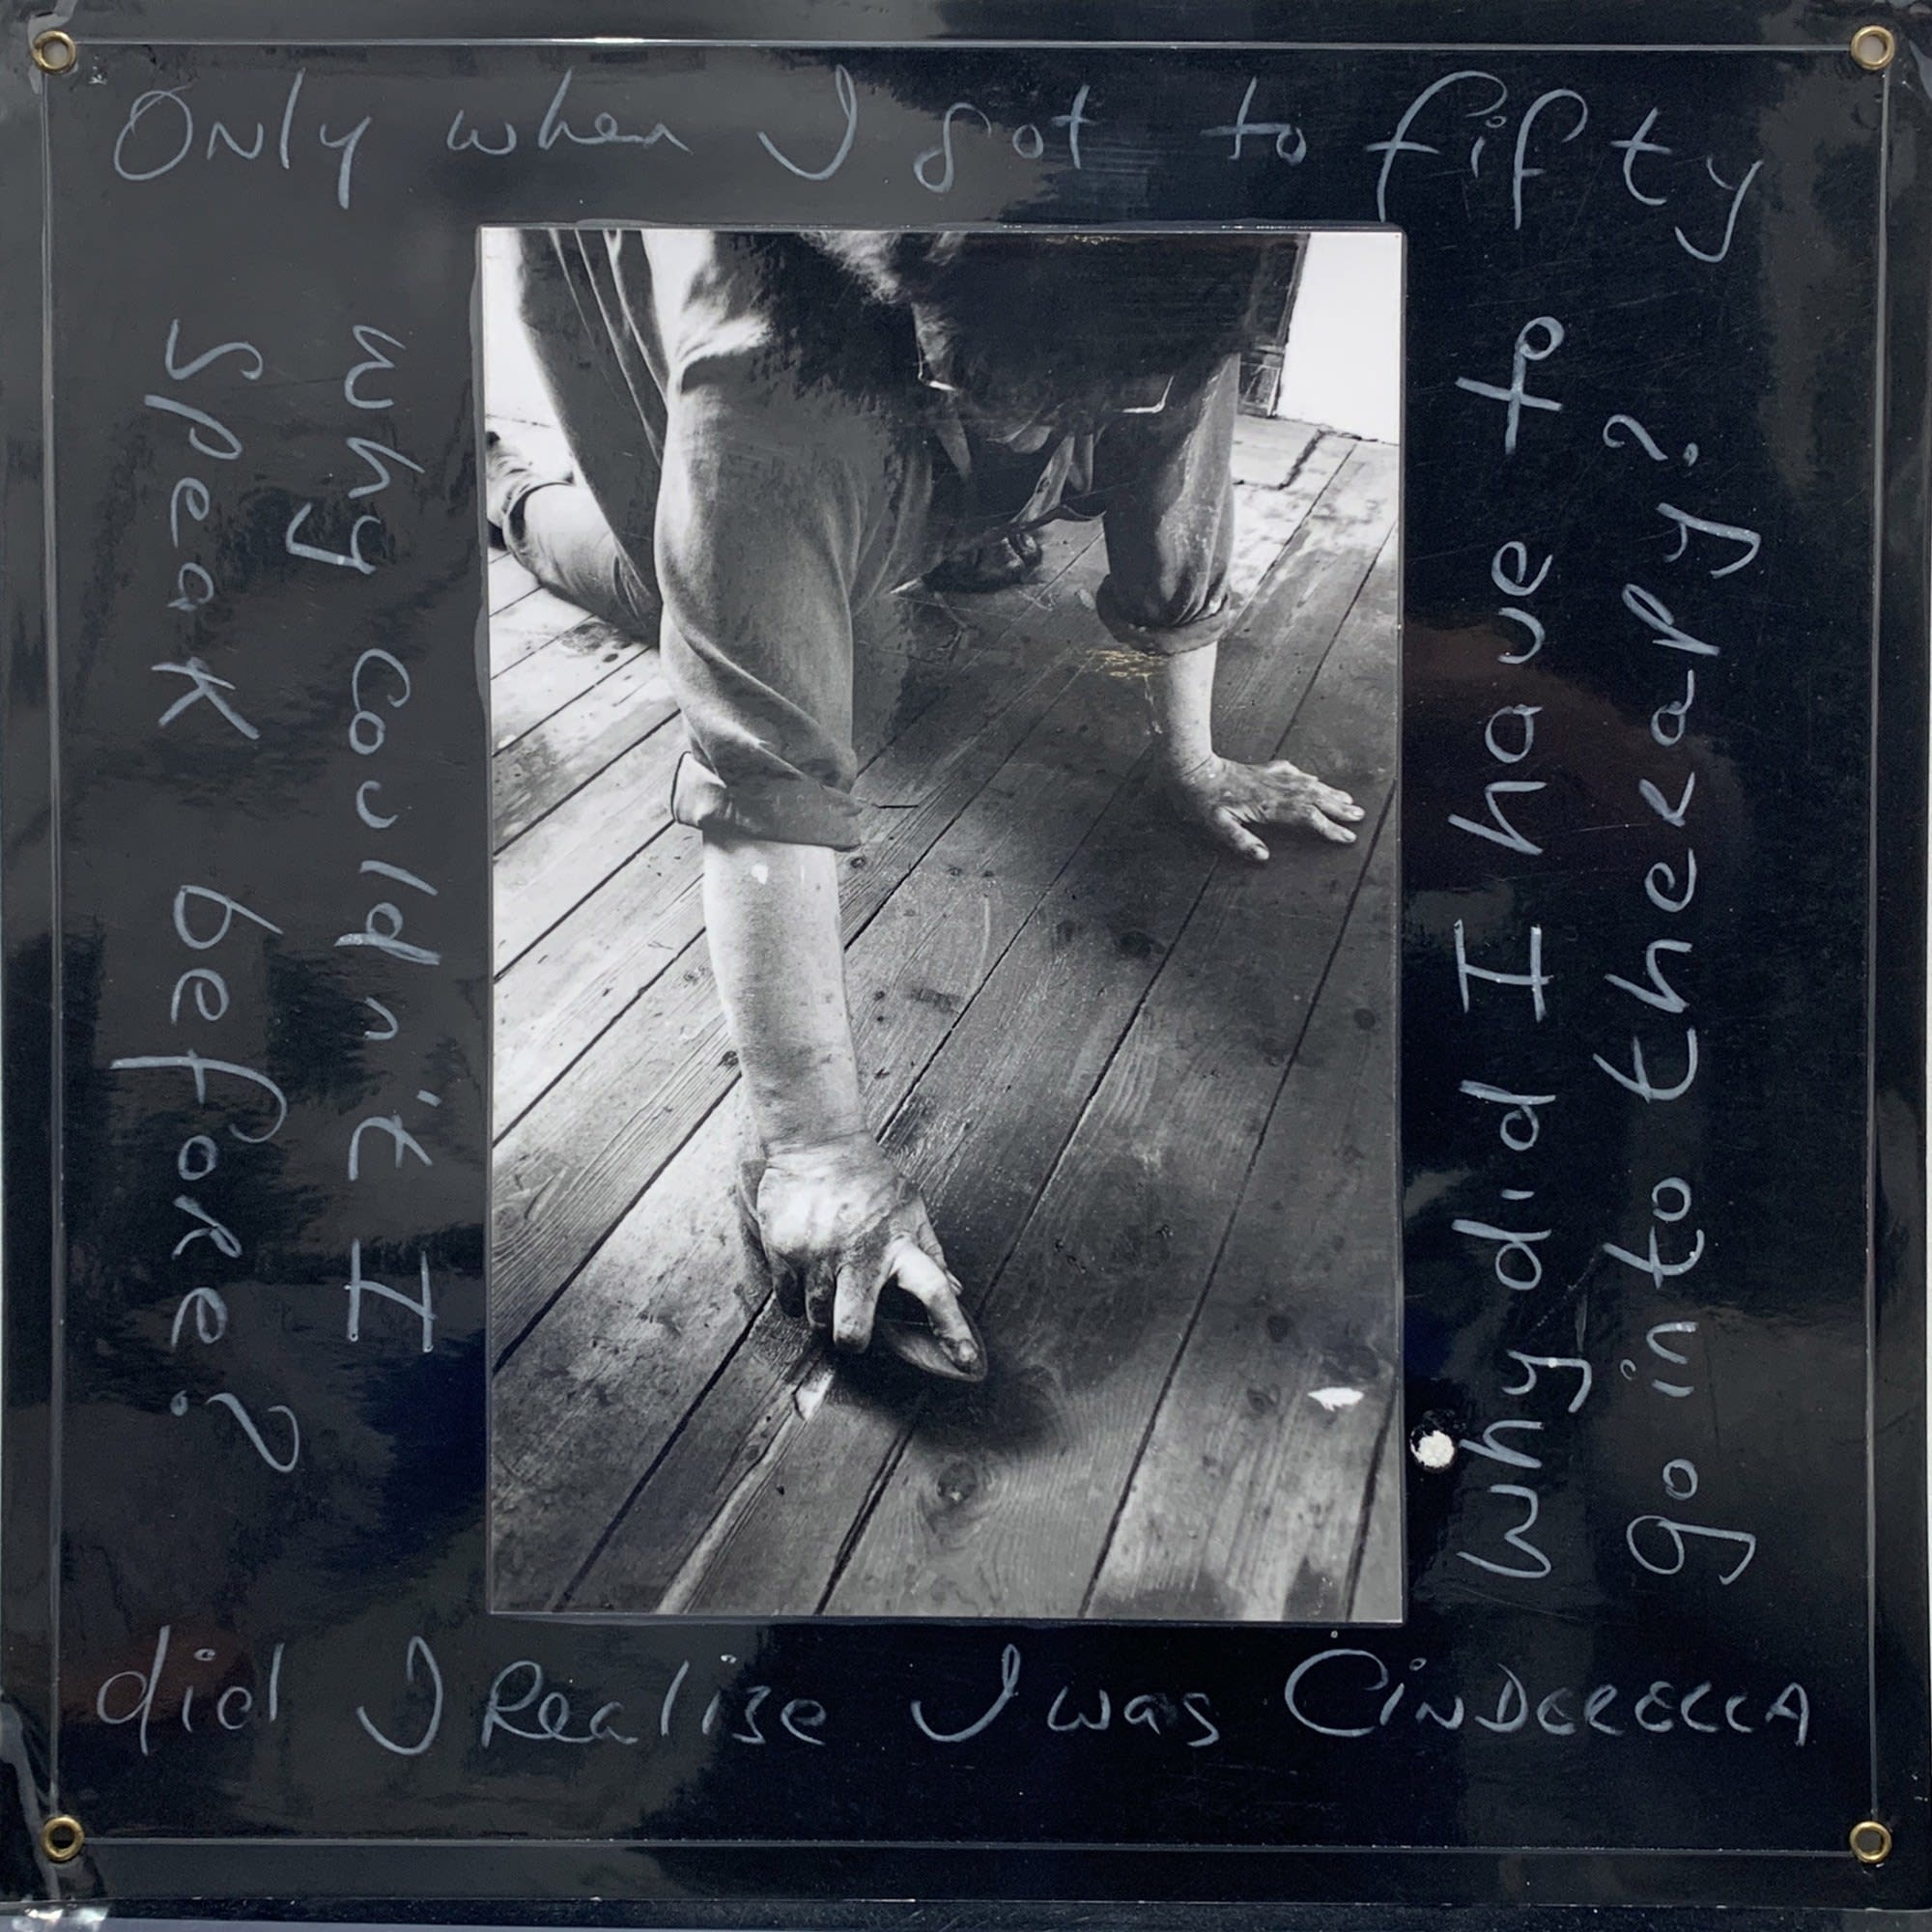 Only when I got to fifty
did I Realise I was CINDERELLA
why did I have to
go into therapy?
why couldn't I
Speak before?